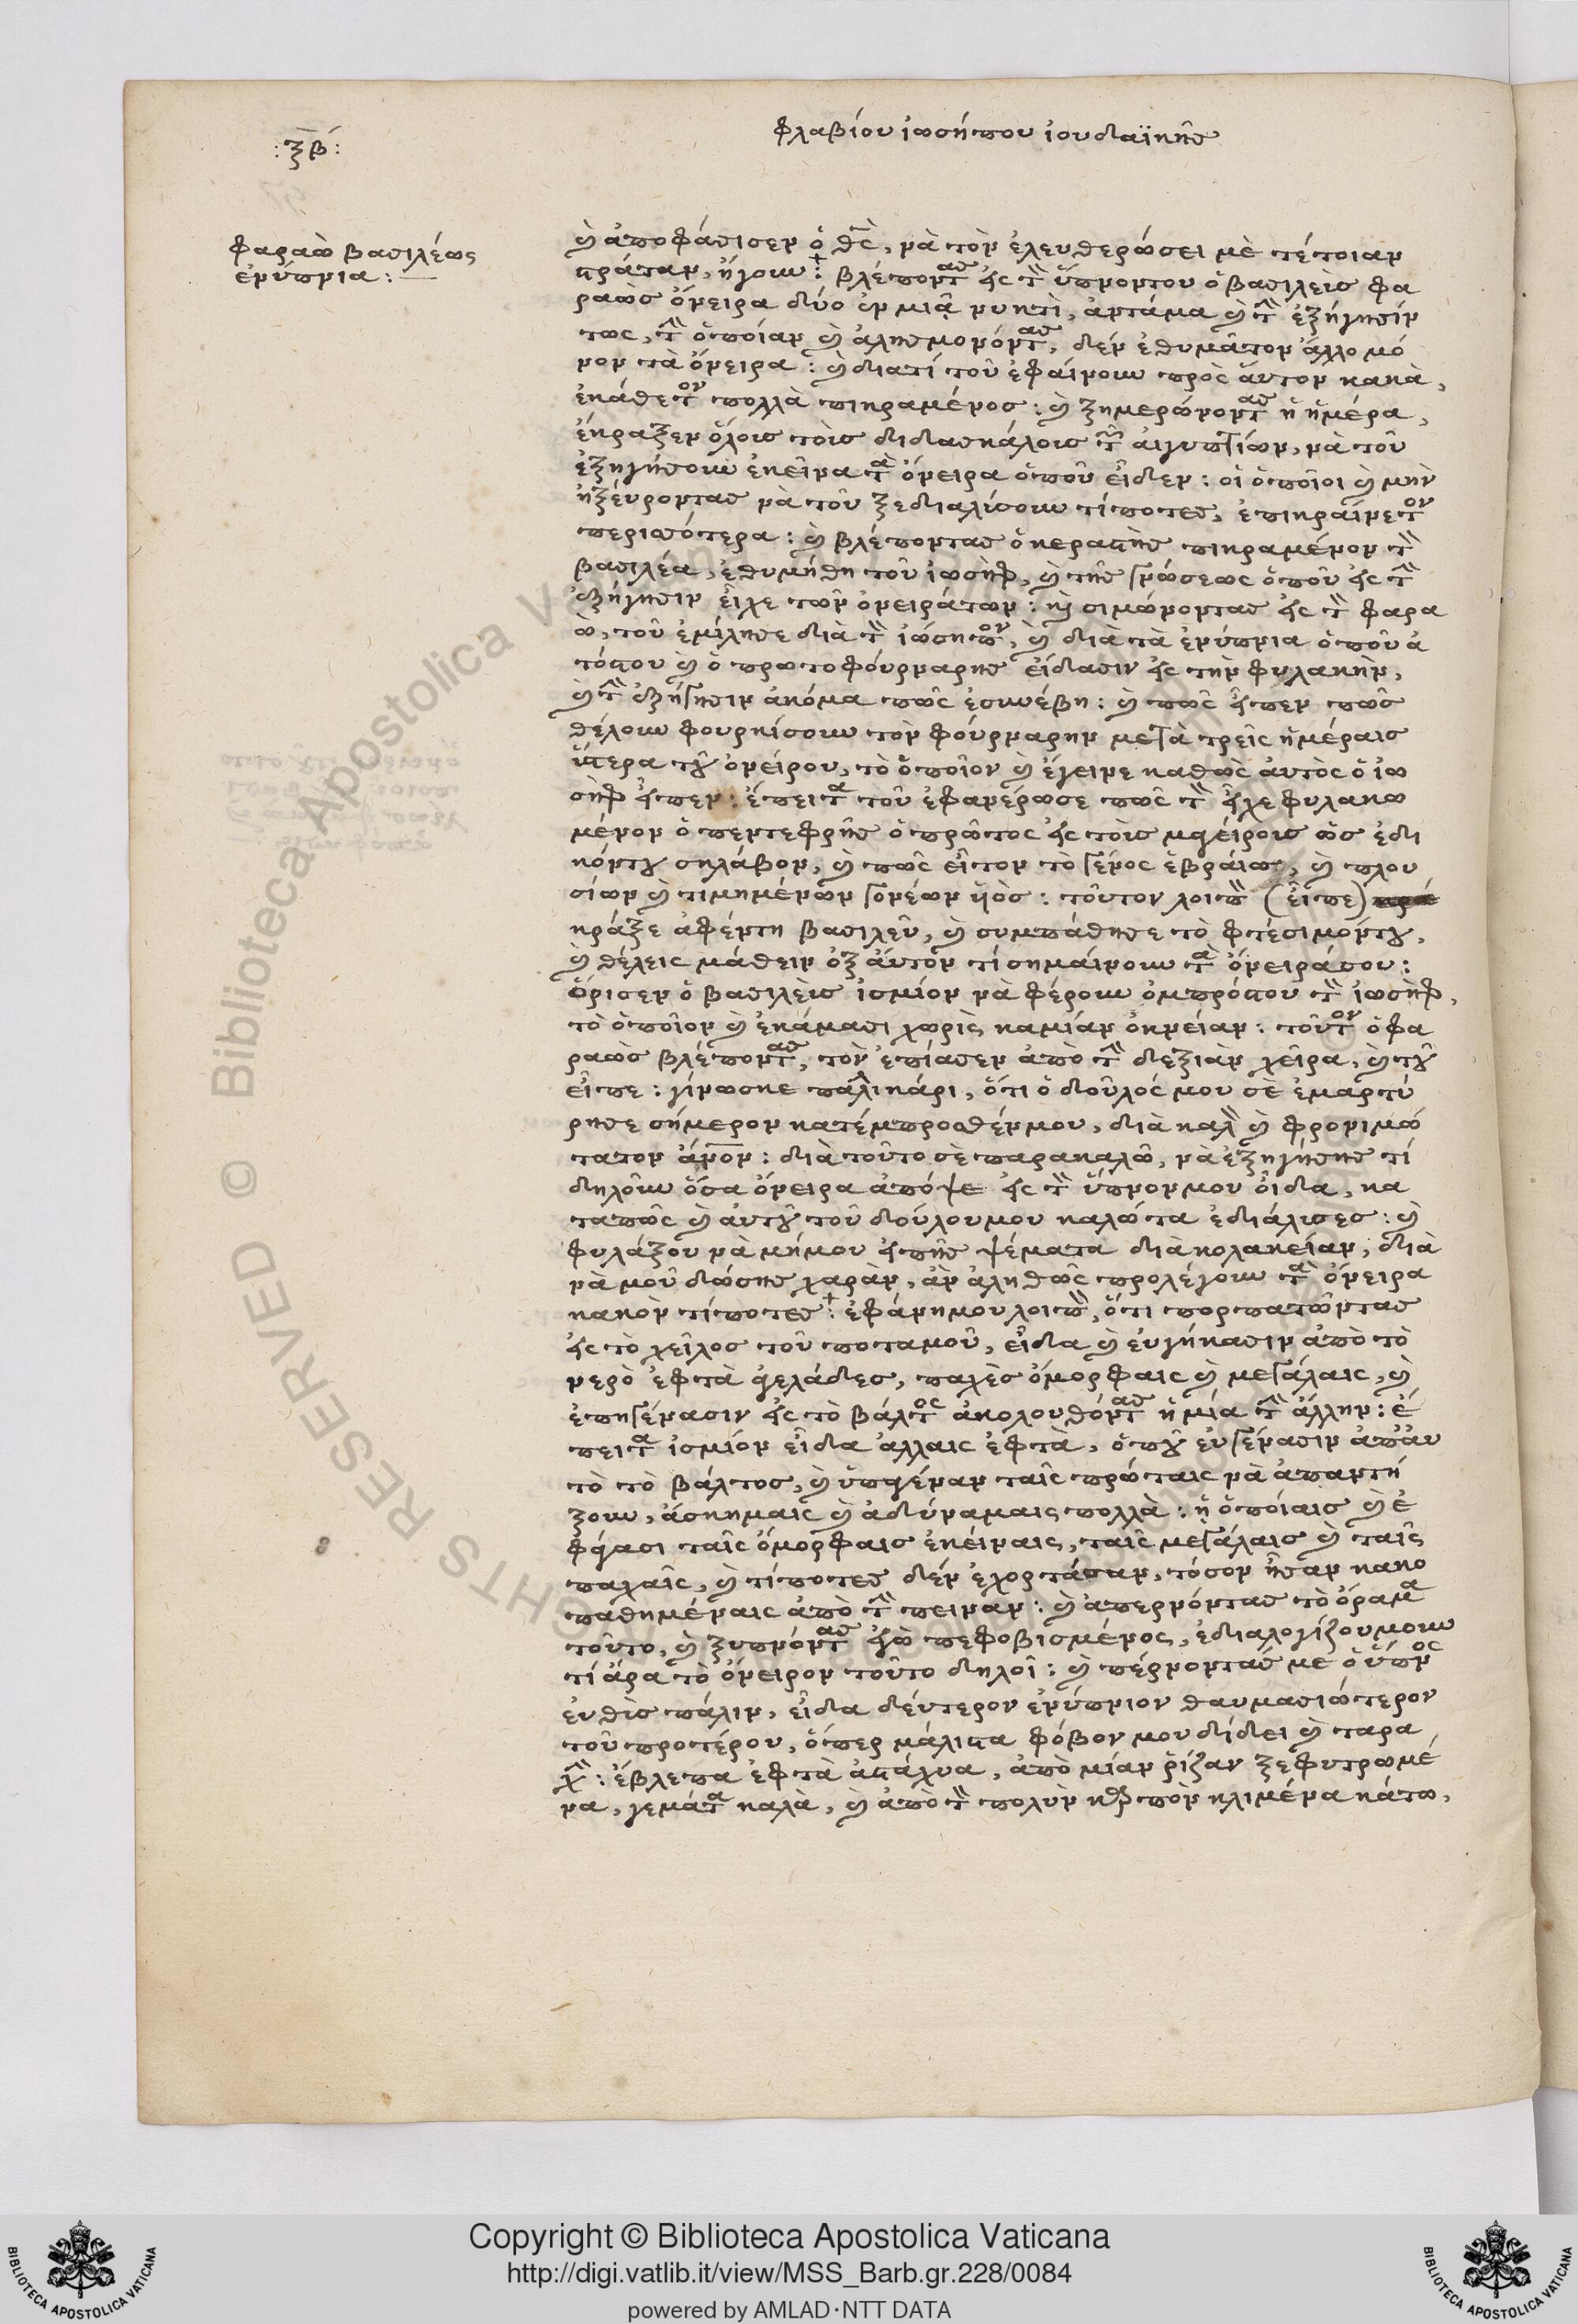 φλαβίου ἰωσήπου ἰουδαϊκῆς
:ξβ:
φαραὼ βασιλέως
ἐνύπνια:
καὶ ἀποφάσισεν ὁ θς, νὰ τὸν ἐλευθερώσει μὲ τέτοιαν
στράταν, ἤγουν: βλέποντας εἰς τὸν ὕπνοντου ὁ βασιλεὺς φα
ραὼς ὄνειρα δύο ἐν μιᾷ νυκτὶ, ἀντάμα καὶ τὴν ἐξήγησίν
τως, τὴν ὁποίαν καὶ ἀλησμονόντας, δὲν ἐθυμᾶτον ἄλλο μό
νον τὰ ὄνειρα: καὶ διατί τοῦ ἐφαίνουν πρὸς αὐτὸν κακὰ,
ἐκάθετον πολλὰ πικραμένος: καὶ ξημερώνοντας ἡ ἡμέρα,
ἔκραξεν ὅλους τοὺς διδασκάλους τῶν αἰγυπτίων, νὰ τοῦ
ἐξηγήσουν ἐκεῖνα τὰ ὄνειρα ὁποῦ εἶδεν: οἱ ὁποῖοι καὶ μὴν
ἠξεύροντας νὰ τοῦ ξεδιαλίσουν τίποτες, ἐπικραίνετον
περισότερα: καὶ βλέποντας ὁ κεραστὴς πικραμένον τὸν
βασιλέα, ἐθυμήθη τοῦ ἰωσὴφ, καὶ τῆς γνώσεως ὁποῦ εἰς τὴν
ἐξήγησιν εἶχε τῶν ὀνειράτων: καὶ σιμώνοντας εἰς τὸν φαρα
ὼ, τοῦ ἐμίλησε διὰ τὸν ἰώσηπον, καὶ διὰ τὰ ἐνύπνια ὁποῦ ἀ
τόςτου καὶ ὁ πρωτοφούρναρης εἴδασιν εἰς τὴν φυλακὴν,
καὶ τὴν ἐξήγησιν ἀκόμα πῶς ἐσυνέβη: καὶ πῶς εἶπεν πῶς
θέλουν φουρκίσουν τὸν φούρναρην μετὰ τρεῖς ἡμέραις
ὕστερα τοῦ ὀνείρου, τὸ ὁποῖον καὶ ἔγεινε καθὼς αὐτὸς ὁ ἰω
σὴφ εἶπεν: ἔπειτα τοῦ ἐφανέρωσε πῶς τὸν εἶχε φυλακω
μένον ὁ πεντεφρῆς ὁ πρῶτος εἰς τοὺς μαγείρους ὡς ἐδι
κόντου σκλάβον, καὶ πῶς εἶτον τὸ γένος ἑβράιων, καὶ πλου
σίων καὶ τιμημένων γονέων ὑὸς: τοῦτον λοιπὸν (εἶπε)
κράξε ἀφέντη βασιλεῦ, καὶ συμπάθησε τὸ φτέσιμόντου,
καὶ θέλεις μάθειν ἐξ αὐτὸν τί σημαίνουν τὰ ὄνειράσου:
ὅρισεν ὁ βασιλεὺς ἰσμίον νὰ φέρουν ὀμπρόςτου τὸν ἰωσὴφ,
τὸ ὁποῖον καὶ ἐκάμασι χωρὶς καμίαν ὀκνείαν: τοῦτον ὁ φα
ραὼς βλέποντας, τὸν ἐπίασεν ἀπὸ τὴν δεξιὰν χεῖρα, καὶ τοῦ
εἶπε: γίνωσκε παλικάρι, ὅτι ὁ δοῦλός μου σὲ ἐμαρτύ
ρησε σήμερον κατέμπροσθένμου, διὰ καλὸν καὶ φρονιμώ
τατον ἄνον: διὰ τοῦτο σὲ παρακαλῶ, νὰ ἐξηγήσης τί
δηλοῦν ὅσα ὄνειρα ἀπόψε εἰς τὸν ὕπνον μου οἶδα, κα
ταπῶς καὶ αὐτοῦ τοῦ δούλουμου καλώτα ἐδιάλισες: καὶ
φυλάξου νὰ μήμου εἰπῆς ψέματα διὰ κολακείαν, διὰ
νὰ μοῦ δώσης χαρὰν, ἀν ἀληθῶς προλέγουν τὰ ὄνειρα
κακὸν τίποτες: ἐφάνημου λοιπὸν, ὅτι πορπατῶντας
εἰς τὸ χεῖλος τοῦ ποταμοῦ, εἶδα καὶ ἐυγήκασιν ἀπὸ τὸ
νερὸ ἐφτὰ ἀγελάδες, παχὲς ὄμορφαις καὶ μεγάλαις, καὶ
ἐπηγένασιν εἰς τὸ βάλτος ἀκολουθόντας ἡ μία τὴν ἄλλην: ἔ
πειτα ἰσμίον εἶδα ἄλλαις ἐφτὰ, ὁποῦ ἐυγένασιν ἀπ᾽ἀυ
τὸ τὸ βάλτος, καὶ ὑπαγέναν ταῖς πρώταις νὰ ἀπαντή
ξουν, ἄσκημαις καὶ ἀδύναμαις πολλὰ: ἡ ὁποίαις καὶ ἐ
φάγασι ταῖς ὄμορφαις ἐκείναις, ταῖς μεγάλαις καὶ ταῖς
παχαῖς, καὶ τίποτες δὲν ἐχορτάσαν, τόσον ἦσαν κακο
παθημέναις ἀπὸ τὴν πείναν: καὶ ἀπερνόντας τὸ ὅραμα
τοῦτο, καὶ ξυπνόντας ἐγὼ πεφοβισμένος, ἐδιαλογίζουμουν
τί ἄρα τὸ ὄνειρον τοῦτο δηλοῖ: καὶ πέρνοντας με ὁ ὕπνος
ἐυθὺς πάλιν, εἶδα δεύτερον ἐνύπνιον θαυμασιώτερον
τοῦ προτέρου, ὅπερ μάλιστα φόβον μου δίδει καὶ ταρα
χὴν: ἔβλεπα ἐφτὰ ἀστάχυα, ἀπὸ μίαν ῥίζαν ξεφυτρωμέ
να, γεμάτα καλὰ, καὶ ἀπὸ τὸν πολὺν καρπὸν κλιμένα κάτω,
Copyright © Biblioteca Apostolica Vaticana
http://digi.vatlib.it/view/MSS_Barb.gr.228/0084
powered by AMLAD·NTT DATA